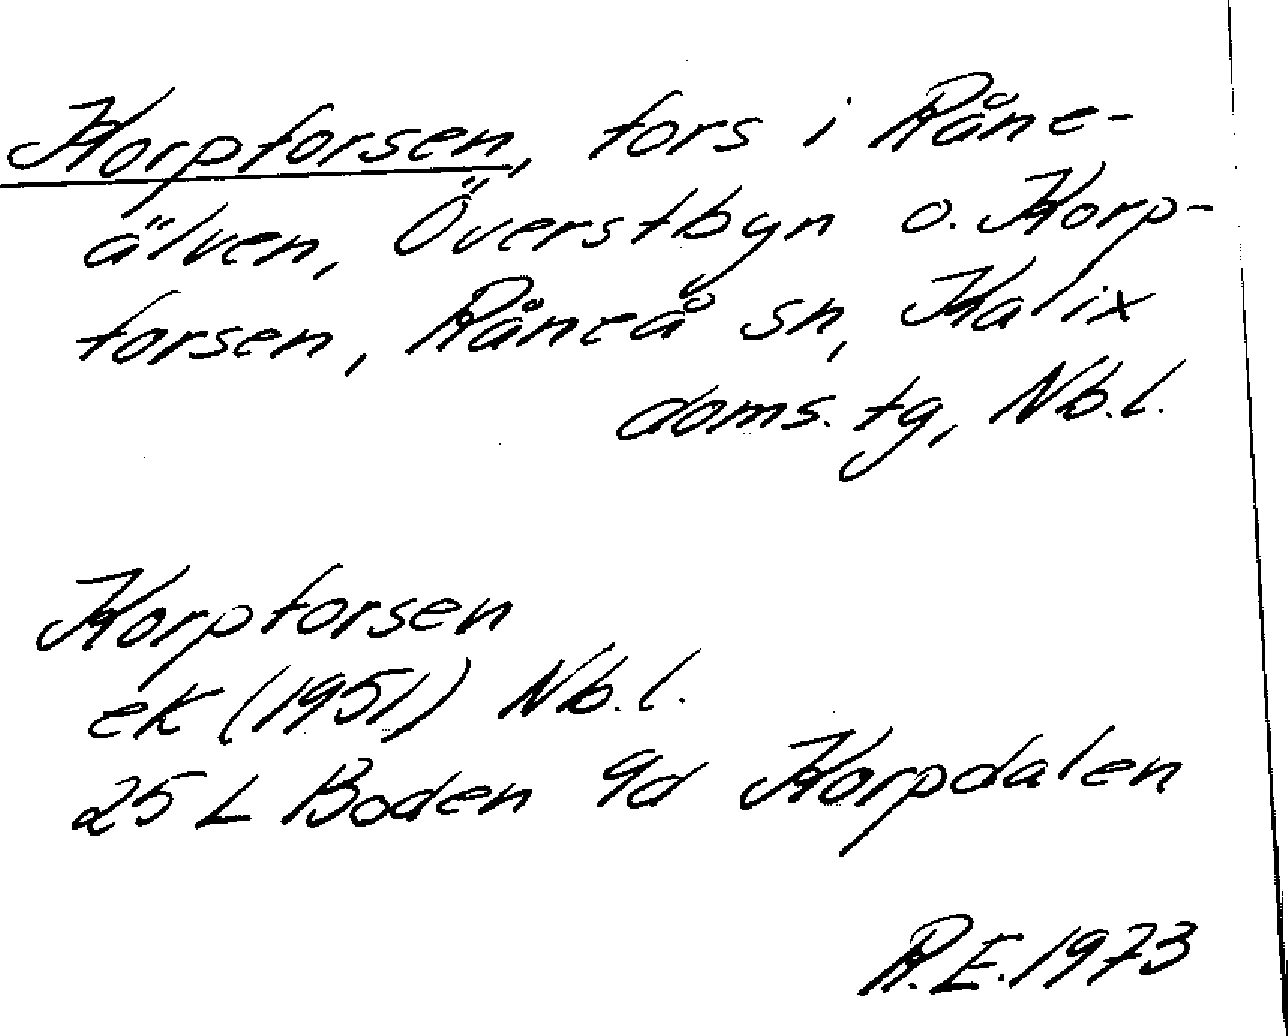 Korpforsen, fors i Råne-
älven, Överstbyn o. Korp-
forsen, Råneå sn, Kalix
doms. tg, Nb.l.
Korpforsen
ek (1951) Nb.l.
25 L Boden 9d Korpdalen
R.E. 1973